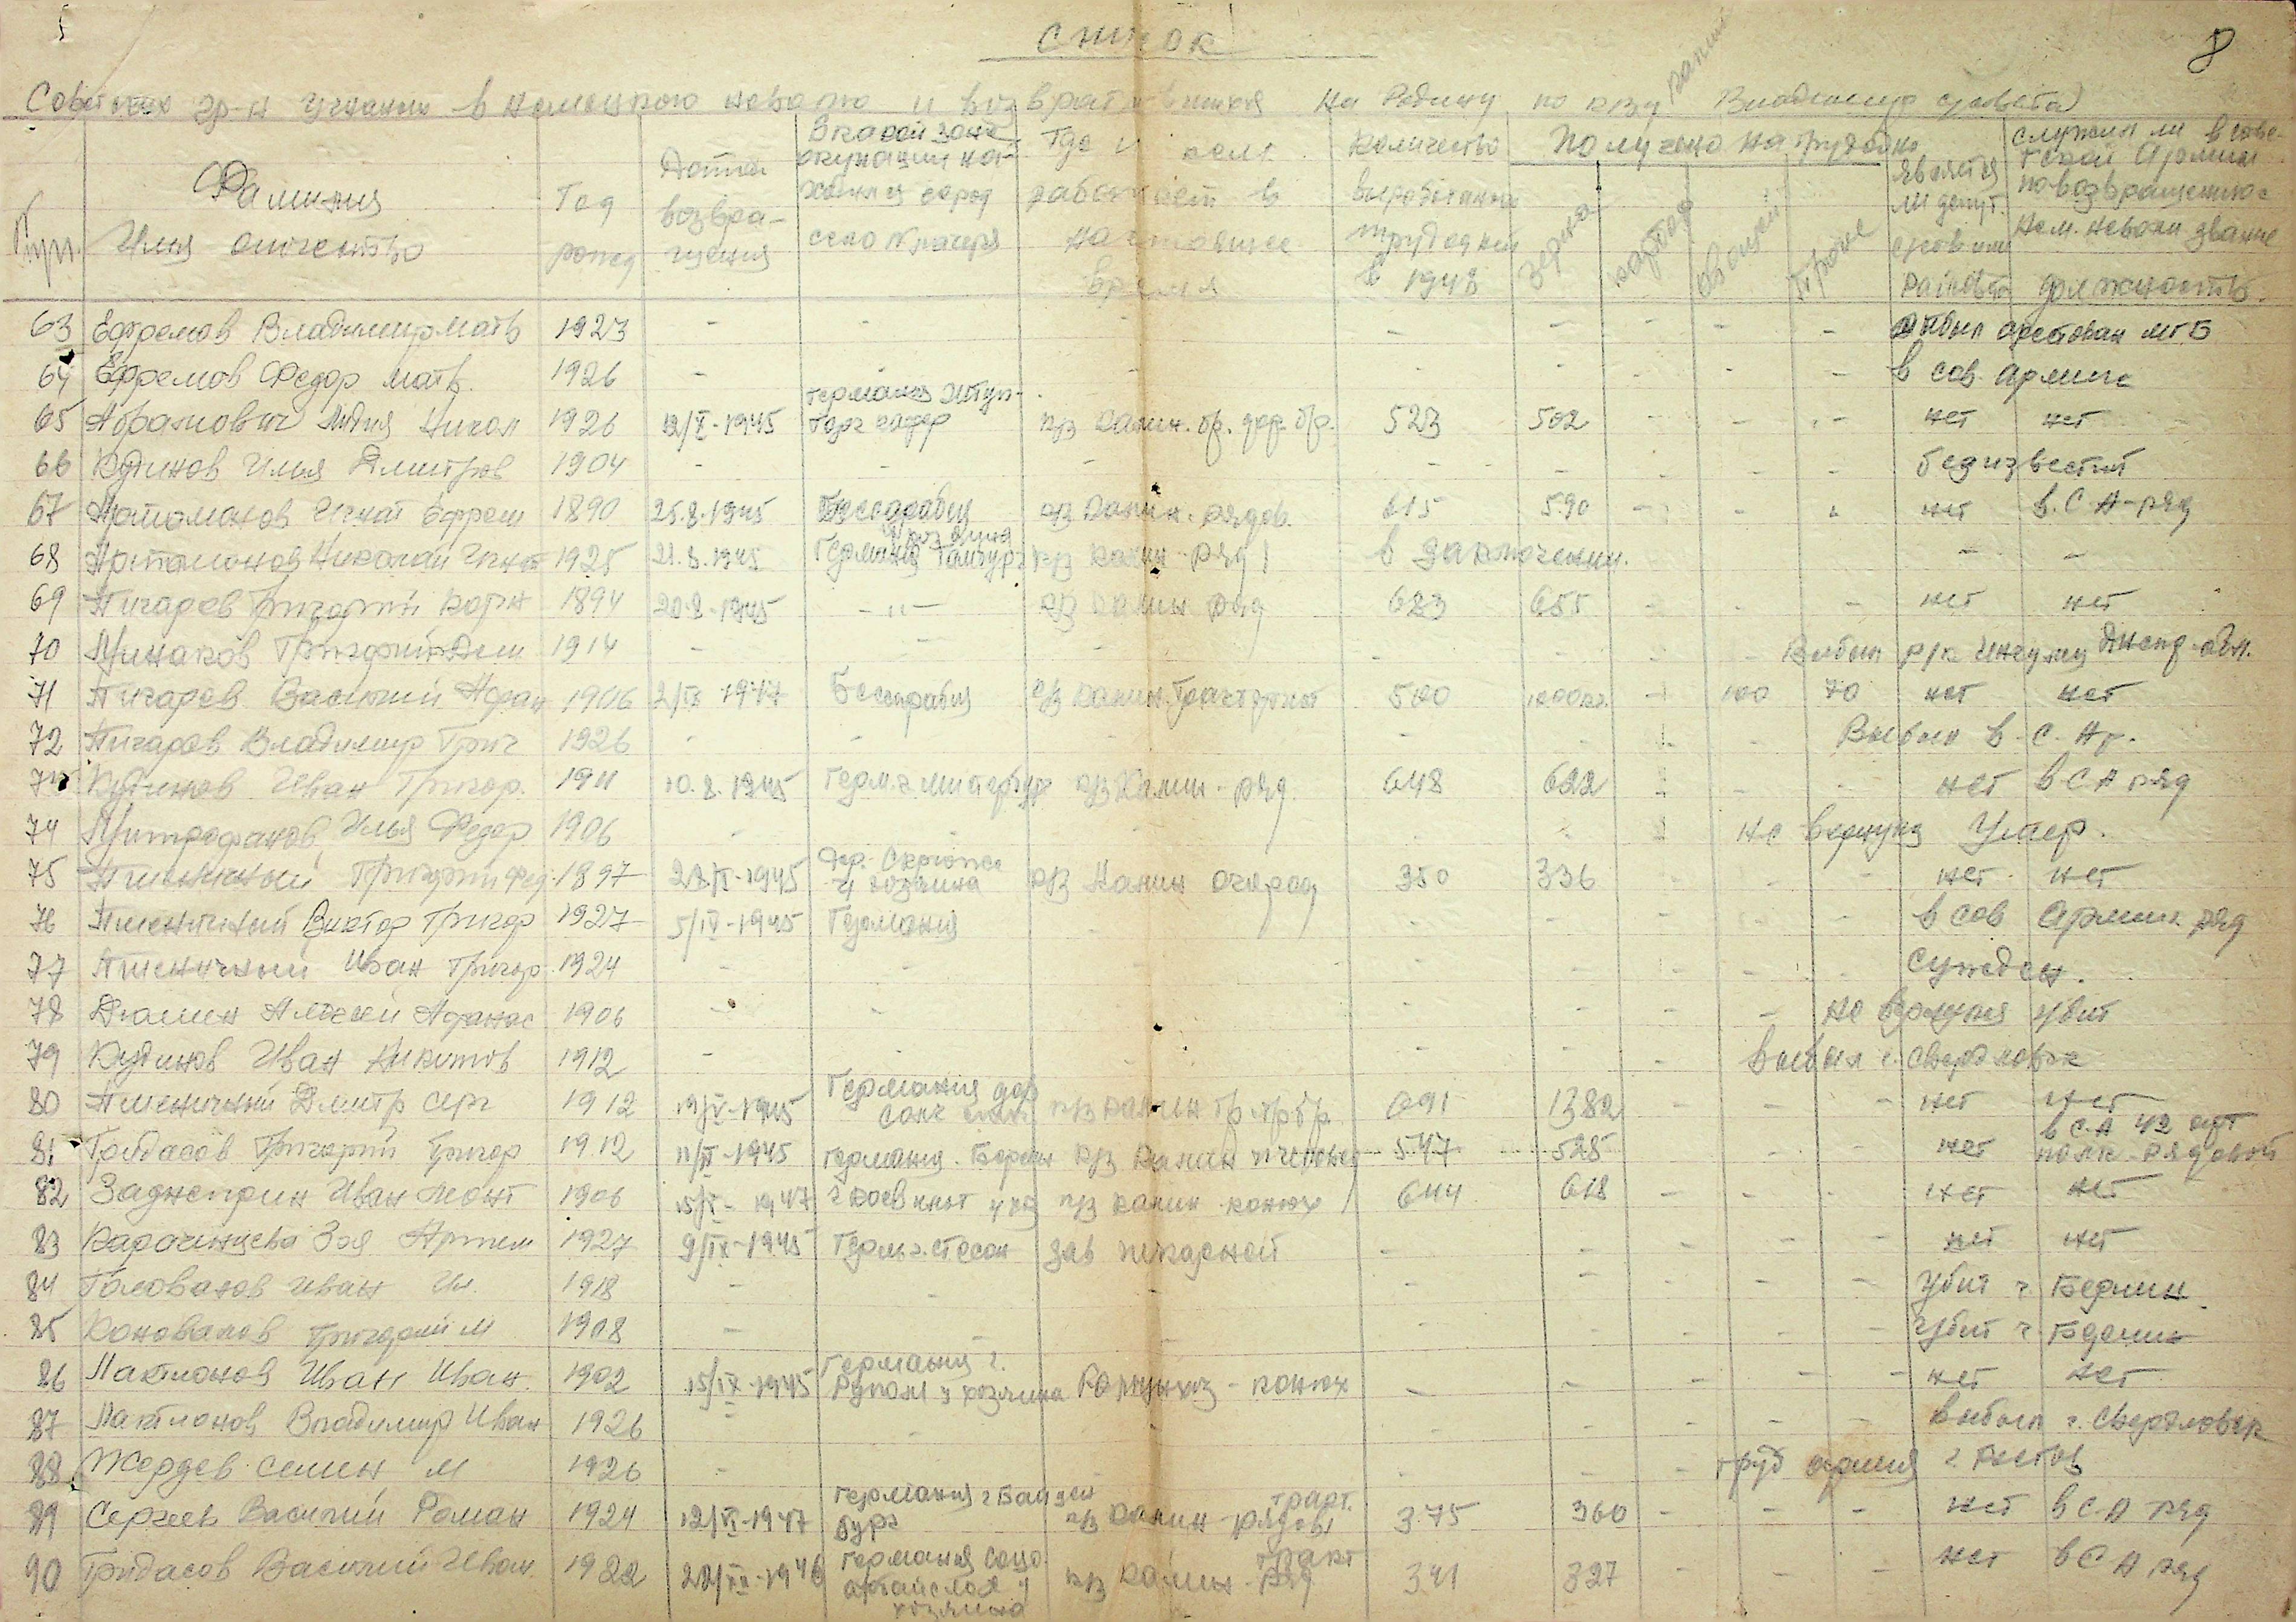 список
8
Советских гр-н угнаных в немецкую неволю и возвратившихся на Родину по к-зу Калинин Владимир с/совета)
№ п.п. Фамилия Имя отчество Год рожд Дата возвра-щения В какой зоне оккупации на-ходился город село № лагеря Где и кем работает в настоящее время Количество выработанных трудодней в 1948 Получено на трудодни зерна картоф овощей проче является ли депут. с/сов или райсовета служил ли в Сове-тской Армии по возвращению с нем. неволи звание должность.
63 Ефремов Владимир Матв 1923 - - - - - - - - был арестован МГБ
64 Ефремов Федор Матв. 1926 - - - - - - - - в сов. армии
65 Абрамович Лидия Никол 1926 12/X-1945 германия Штут-гарт к-з Калин. 523 502 - - - нет нет
66 Кудинов Илья Дмитров 1904 - - - - - - - - безизвестий
67 Артамонов Игнат Ефрем 1890 25.8.1945 Бессарабия к-з Калин. рядов. 615 590 - - - нет в.С А-ряд
68 Артамонов Николай Игнат 1925 21.8.1945 Германия Гамбург к-з Калин-ряд в заключении. - -
69 Пигарев Григорий Корн 1894 20.8-1945 -"- к-з Калин ряд 683 655 - - - нет нет
70 Минаков Григорий Дем 1914 - - - - - - - Выбыл Днепр. обл.
71 Пигарев Василий Афан 1906 2/IX 1947 Бессарабия к-з Калин. Тракторист 500 1000кг. - 100 70 нет нет
72 Пигарев Владимир Григ 1926 - - - - - - - Выбыл в. С. Ар.
73 Кудинов Иван Григор. 1911 10.8.1945 Герм. г. к-з Калин - ряд 648 622 - - - нет в С А ряд
74 Митрофанов Илья Федор 1906 - - - - - - не вернулся Умер.
75 Пшеничный Григорий Фед. 1897 28/X-1945 у хозяина к-з Калин 350 336 - - - нет нет
76 Пшеничный Виктор Григор 1927 5/IV-1945 Германия - - - - - - в сов Армии. ряд
77 Пшеничный Иван Григор. 1924 - - - - - - - - сужден.
78 Дюмин Алексей Афанас 1906 - - - - - - - не вернулся убит
79 Кудинов Иван Никитов 1912 - - - - - - выбыл г. Свердловск
80 Пшеничный Дмитр Серг 1912 19/V-1945 Германия к-з Калин 691 1382 - - - нет нет
81 Гридасов Григорий Григор 1912 11/IX-1945 германия. Берлин к-з Калин 547 525 - - нет в С.А 42 арт полк рядовой
82 Заднепрян Иван 1906 15/IX-1947 г к-з Калин конюх 644 618 - - - нет нет
83 Карачинцева Зоя Артем 1927 9/IX-1945 Герм. г. зав пекарней - - - - - нет нет
84 Головачов Иван И. 1918 - - - - - - - - убит г. Берлин
85 Коновалов Григорий М 1908 - - - - - - - - убит г. Берлин
86 Лактионов Иван Иван. 1902 15/IX-1945 Германия г. у хозяина - конюх - - - - - нет нет
87 Лактионов Владимир Иван 1926 - - - - - - - выбыл г. Свердловск
88 Жердев Семен М 1926 - - - - - труд армия г. Ростов
89 Сергеев Василий Роман 1924 12/VI-1947 германия г. бург к-з Калин - рядов тракт. 375 360 - - - нет в С.А ряд
90 Гридасов Василий Иван. 1922 22/XII-1946 германия у хозяина к-з Калин - ряд тракт 341 327 - - - нет в С А ряд